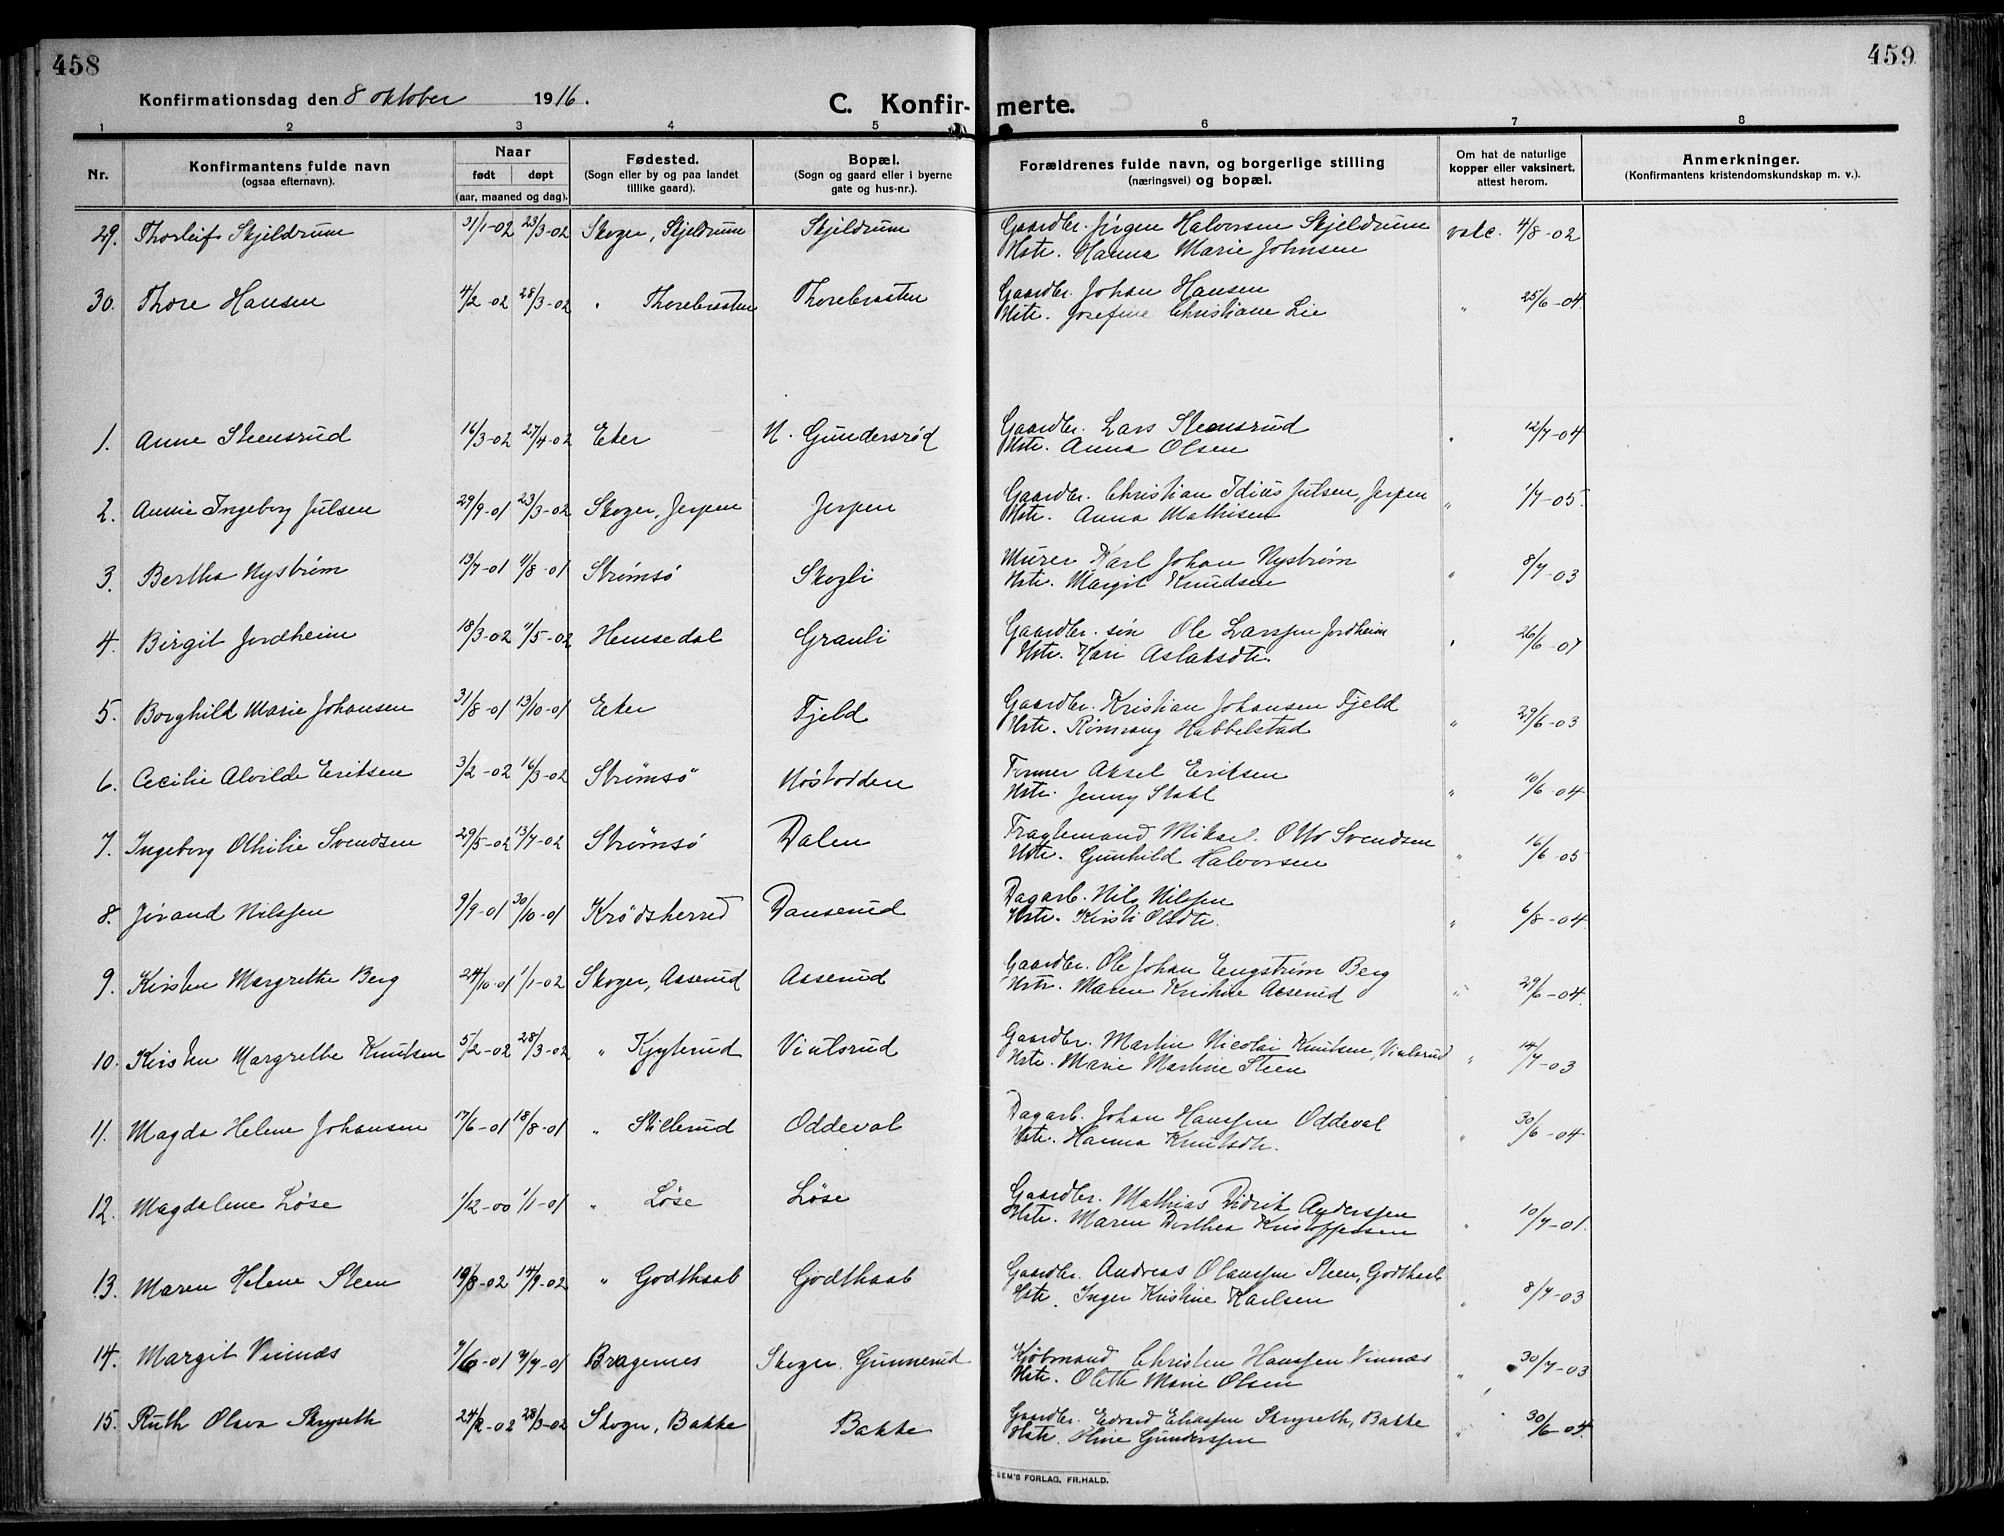 458
459
Konfirmationsdag den 8 oktober 1916.
C. Konfirmerte.
1 2 3 4 5 6 7 8
Nr.
Konfirmantens fulde navn
(ogsaa efternavn).
Naar
født døpt
(aar, maaned og dag).
Fødested.
(Sogn eller by og paa landet
tillike gaard).
Bopæl.
(Sogn og gaard eller i byerne
gate og hus-nr.).
Forældrenes fulde navn, og borgerlige stilling
(næringsvei) og bopæl.
Om hat de naturlige
kopper eller vaksinert,
attest herom.
Anmerkninger.
(Konfirmantens kristendomskundskap m. v.).
29. Thorleif Skjeldrum 31/1-02 23/3-02 Skoger, Skjeldrum Skjeldrum Gaardbr. Jørgen Halvorsen Skjeldrum vacc. 4/8-02
Hstr. Hanna Marie Johnsen
30. Thore Hansen 4/2-02 28/3-02 " Thorebraaten Thorebraaten Gaardbr. Johan Hansen " 25/6-04.
Hstr. Josefine Christiane Lie
1. Anne Steensrud 16/3-02 27/4-02 Eker N. Gundersrød Gaardbr. Lars Steensrud " 12/7-04
Hstr. Anna Olsen
2. Annie Ingeborg Julsen 29/9-01 23/3-02 Skoger, Jerpen Jerpen Gaardbr. Christian Idius Julsen, Jerpen " 1/7-05.
Hstr. Anna Mathisen
3. Bertha Nystrøm 13/7-01 11/8-01 Strømsø Skogli Murer Karl Johan Nystrøm " 8/7-03
Hstr. Margit Knudsen
4. Birgit Jordheim 18/3-02 11/5-02 Hemsedal Granli Gaardbr. søn Ole Larssen Jordheim " 26/6-07
Hstr. Kari Aslaksdtr.
5. Borghild Marie Johansen 31/8-01 13/10-01 Eker Fjeld Gaardbr. Kristian Johansen Fjeld " 29/6-03
Hstr. Rønnaug Habbelstad
6. Cecilie Alvilde Eriksen 3/2-02 16/3-02 Strømsø Møstodden Aksel Eriksen " 10/6-04
Hstr. Jenny Stahl
7. Ingeborg Othilie Svendsen 29/5-02 13/7-02 Strømsø Dalen Fragtemand Mikael Otto Svendsen " 16/6-05
Hstr. Gunhild Halvorsen
8. Jørand Nilssen 9/9-01 30/10-01 Krødsherred Danserud Dagarb. Nils Nilssen " 6/8-04.
Hstr. Kirsti Olsdtr.
9. Kirsten Margrethe Berg 24/10-01 1/1-02 Skoger, Asserud Asserud Gaardbr. Ole Johan Engstrøm Berg " 29/6-04.
Hstr. Maren Kristine Asserud
10. Kirsten Margrethe Knutsen 5/2-02 28/3-02 " Kjylerud Vinlsrud Gaardbr. Martin Nicolai Knutsen, Vinlsrud " 14/7-03
Hstr. Marie Martine Steen
11. Magda Helene Johansen 17/6-01 18/8-01 " Stillerud Oddeval Dagarb. Johan Hanssen Oddeval " 30/6-04
Hstr. Hanna Knutsdtr.
12. Magdalene Løse 1/12-00 1/1-01 " Løse Løse Gaardbr. Mathias Didrik Anderssen " 10/7-01.
Hstr. Maren Dorthea Kristoffersen
13. Maren Helene Steen 19/8-02 14/9-02 " Godthaab Godthaab Gaardbr. Andreas Olaussen Steen, Godthaab " 8/7-03
Hstr. Inger Kristine Karlsen
14. Margit Vinnæs 7/6-01 7/7-01 Bragernes Skoger. Gunnerud Kjøbmand Christen Hanssen Vinnæs " 30/7-03
Hstr. Oleth Marie Olsen
15. Ruth Olava Skryseth 24/2-02 28/3-02 Skoger, Bakke Bakke Gaardbr. Edvard Eliassen Skryseth, Bakke " 30/6-04.
Hstr. Oline Gunderssen
SEM'S FORLAG, FR.HALD.